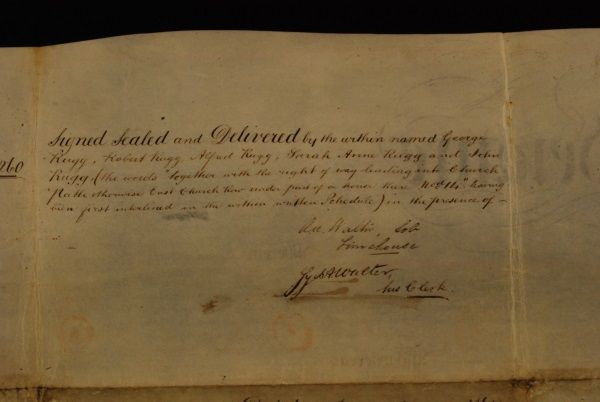 Signed Sealed and Delivered by the within named George
Rugg, Robert Rugg, Alfred Rugg, Sarah Anne Rugg and John
Rugg, (the words "together with the right of way leading into Church
Path otherwise East Church Row under part of a house there No 14" having
been first interlined in the within written Schedule) in the presence of –
260
Walter, Solr
Limehouse
Walter,
his Clerk.